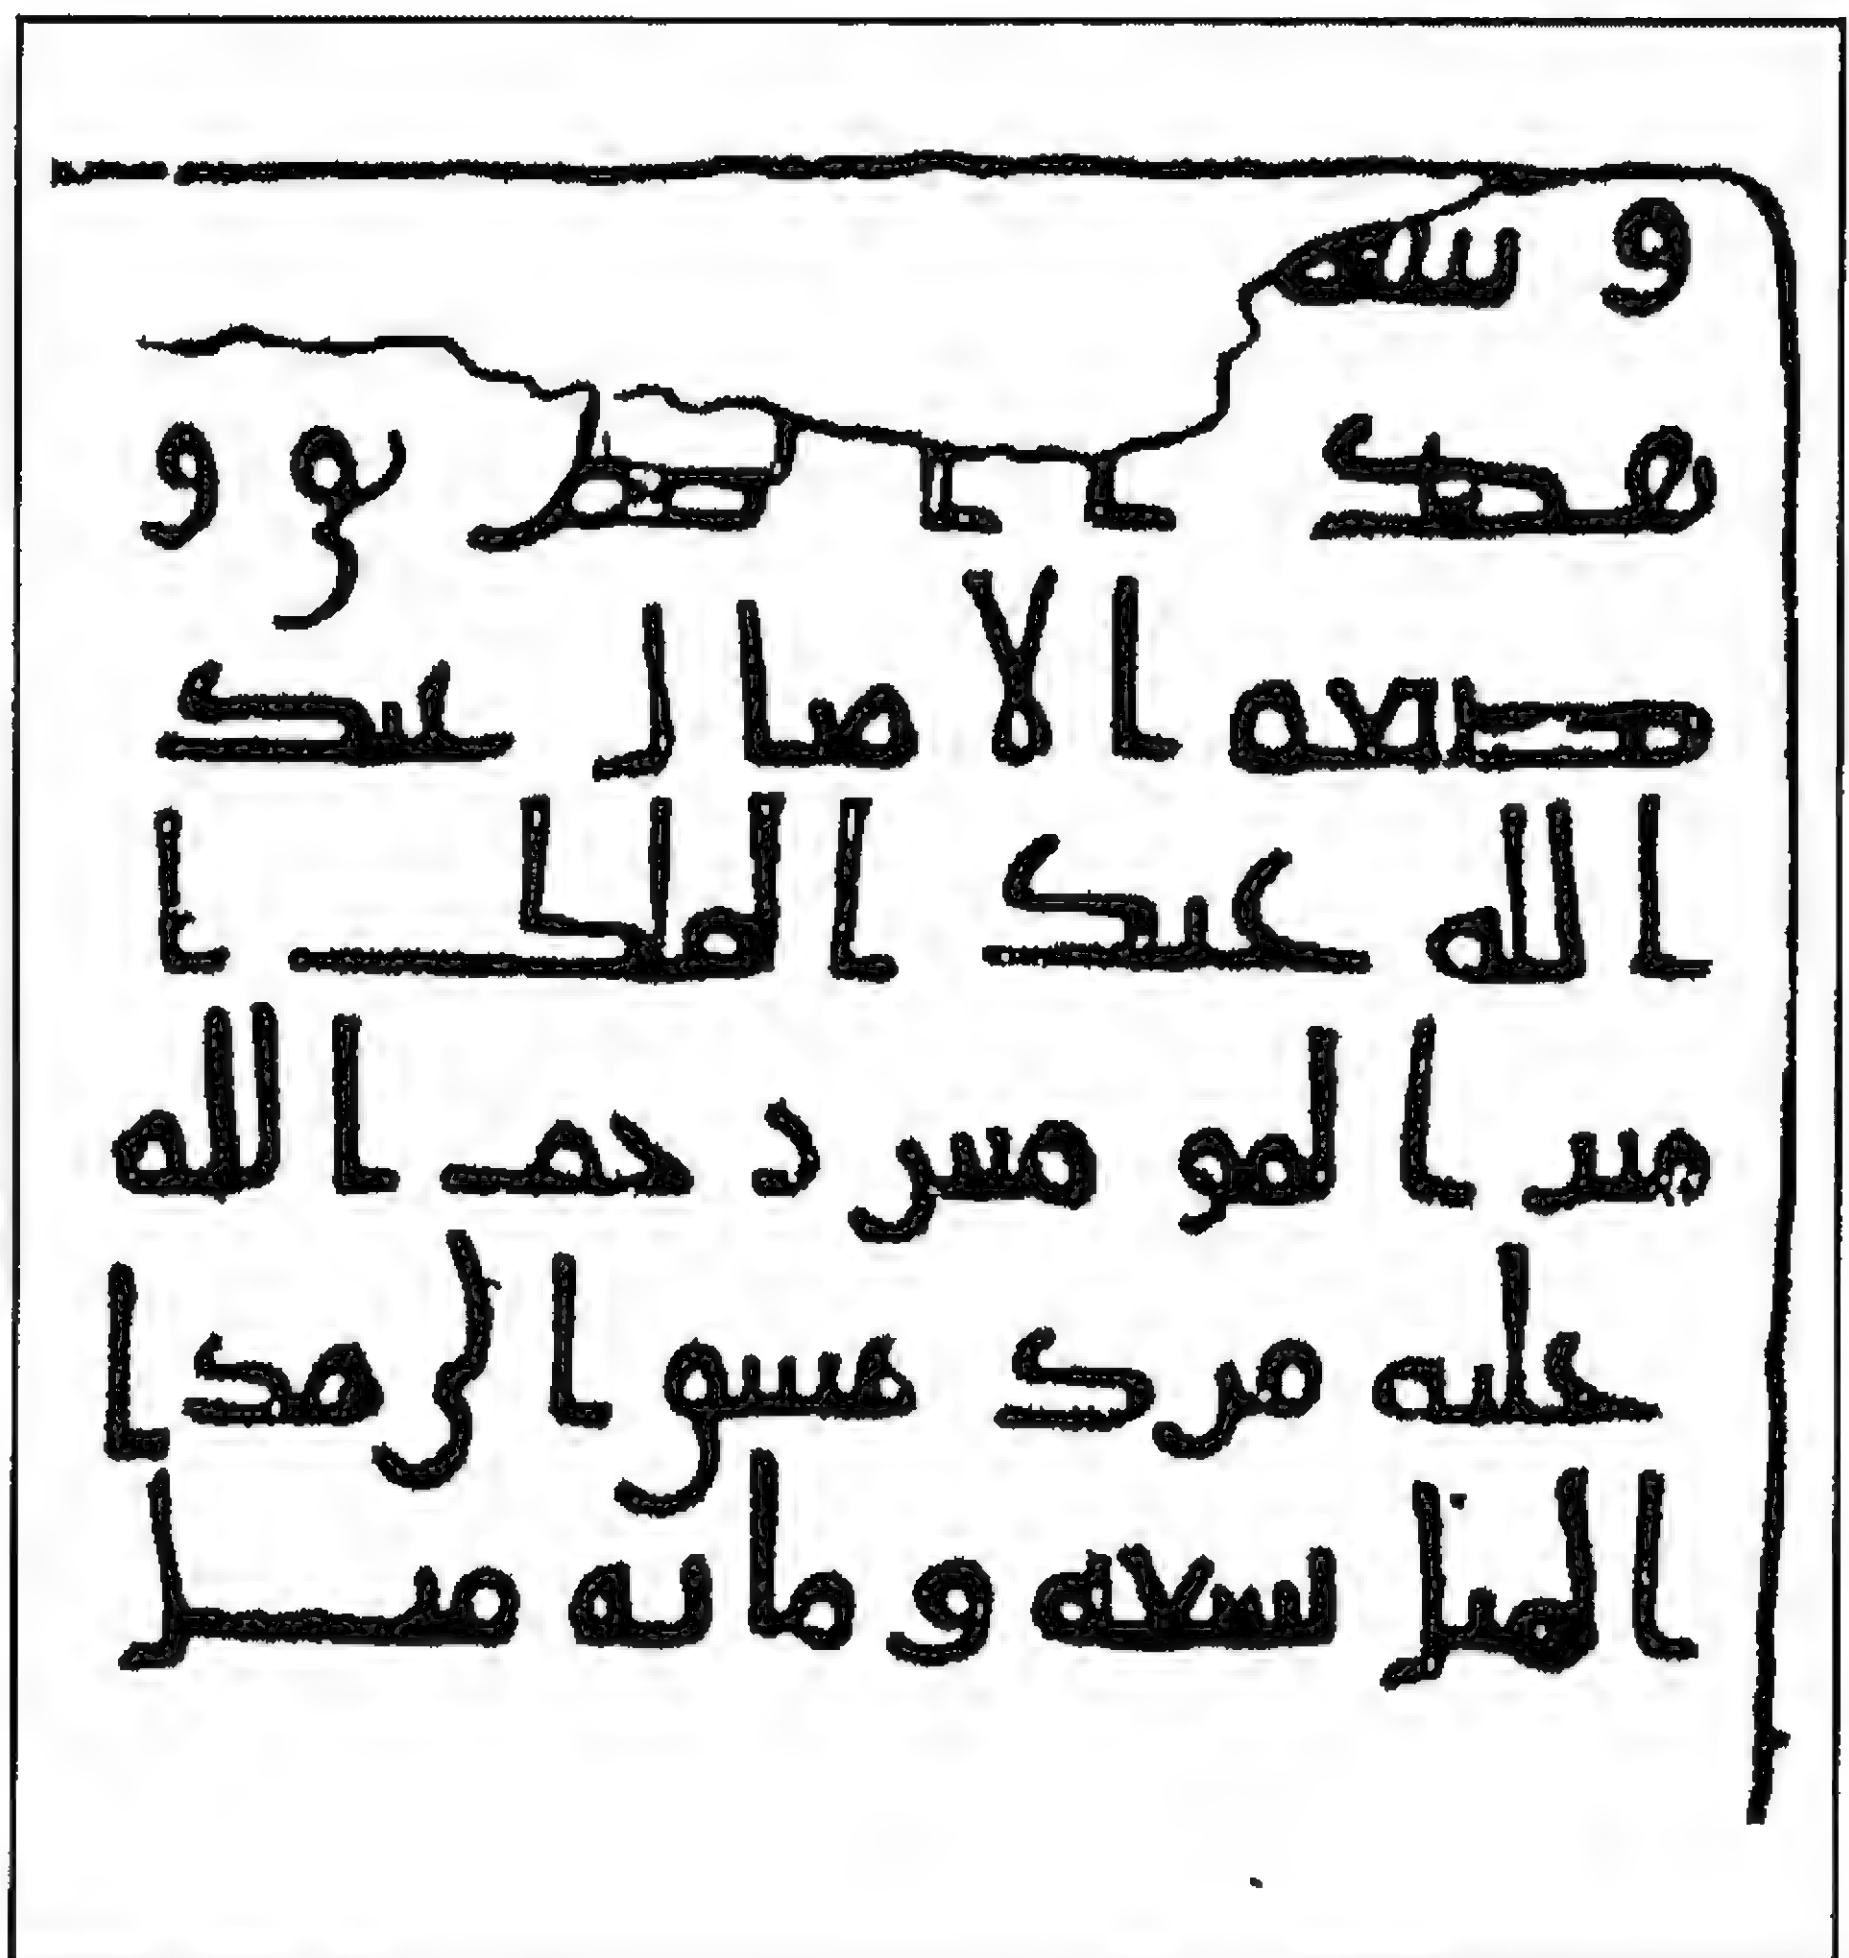 هدا الطريق و
صنعة الاميال عبد
الله عبد الملك ا
مير المومنين رحمت الله
عليه من دمشق الى هدا
الميل تسعة ومائة ميل